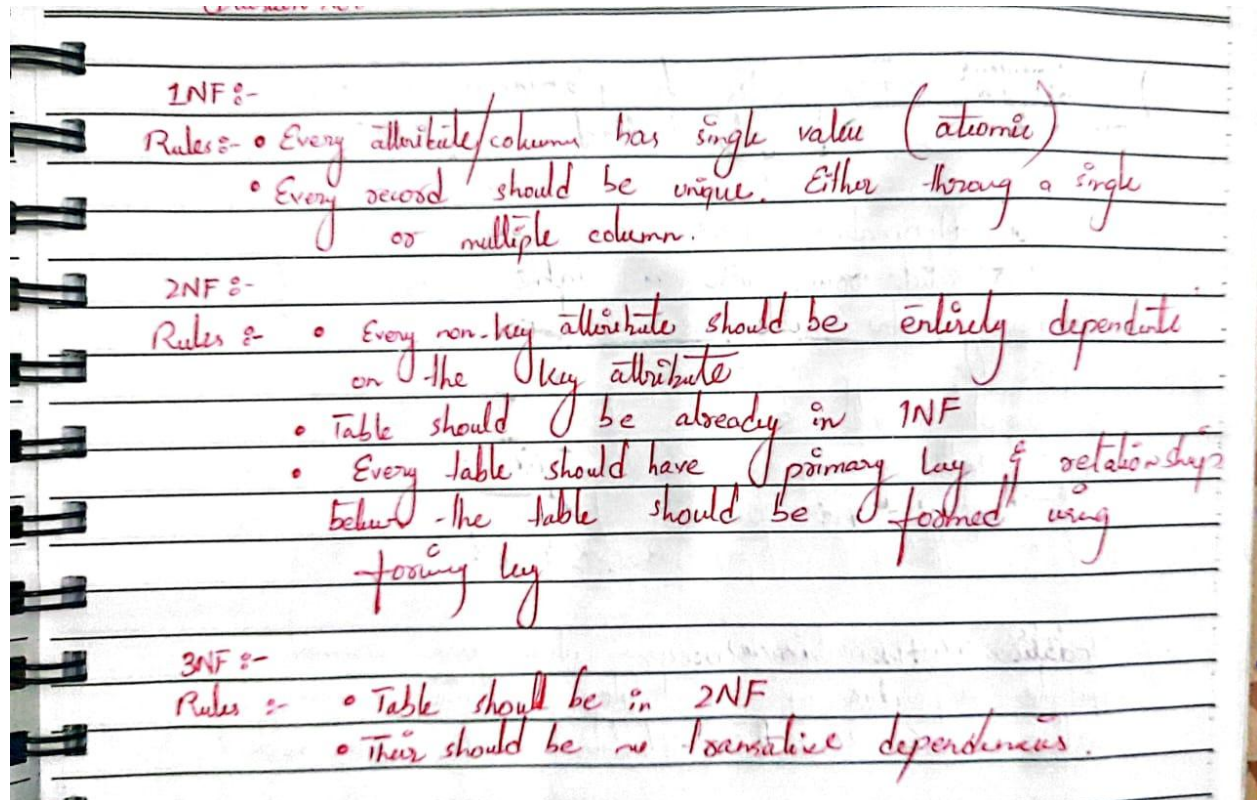 1NF :-
Rules :- • Every attribute/column has single value (atiomic)
• Every record should be unique. Either throug a single
or multiple column.
2NF :-
Rules :- • Every non-key attribute should be entirely dependute
on the key attribute
• Table should be already in 1NF
• Every table should have primary key & relationship
betwn the table should be formed using
foriung key
3NF :-
Rules :- • Table should be in 2NF
• Their should be no transative dependencies.